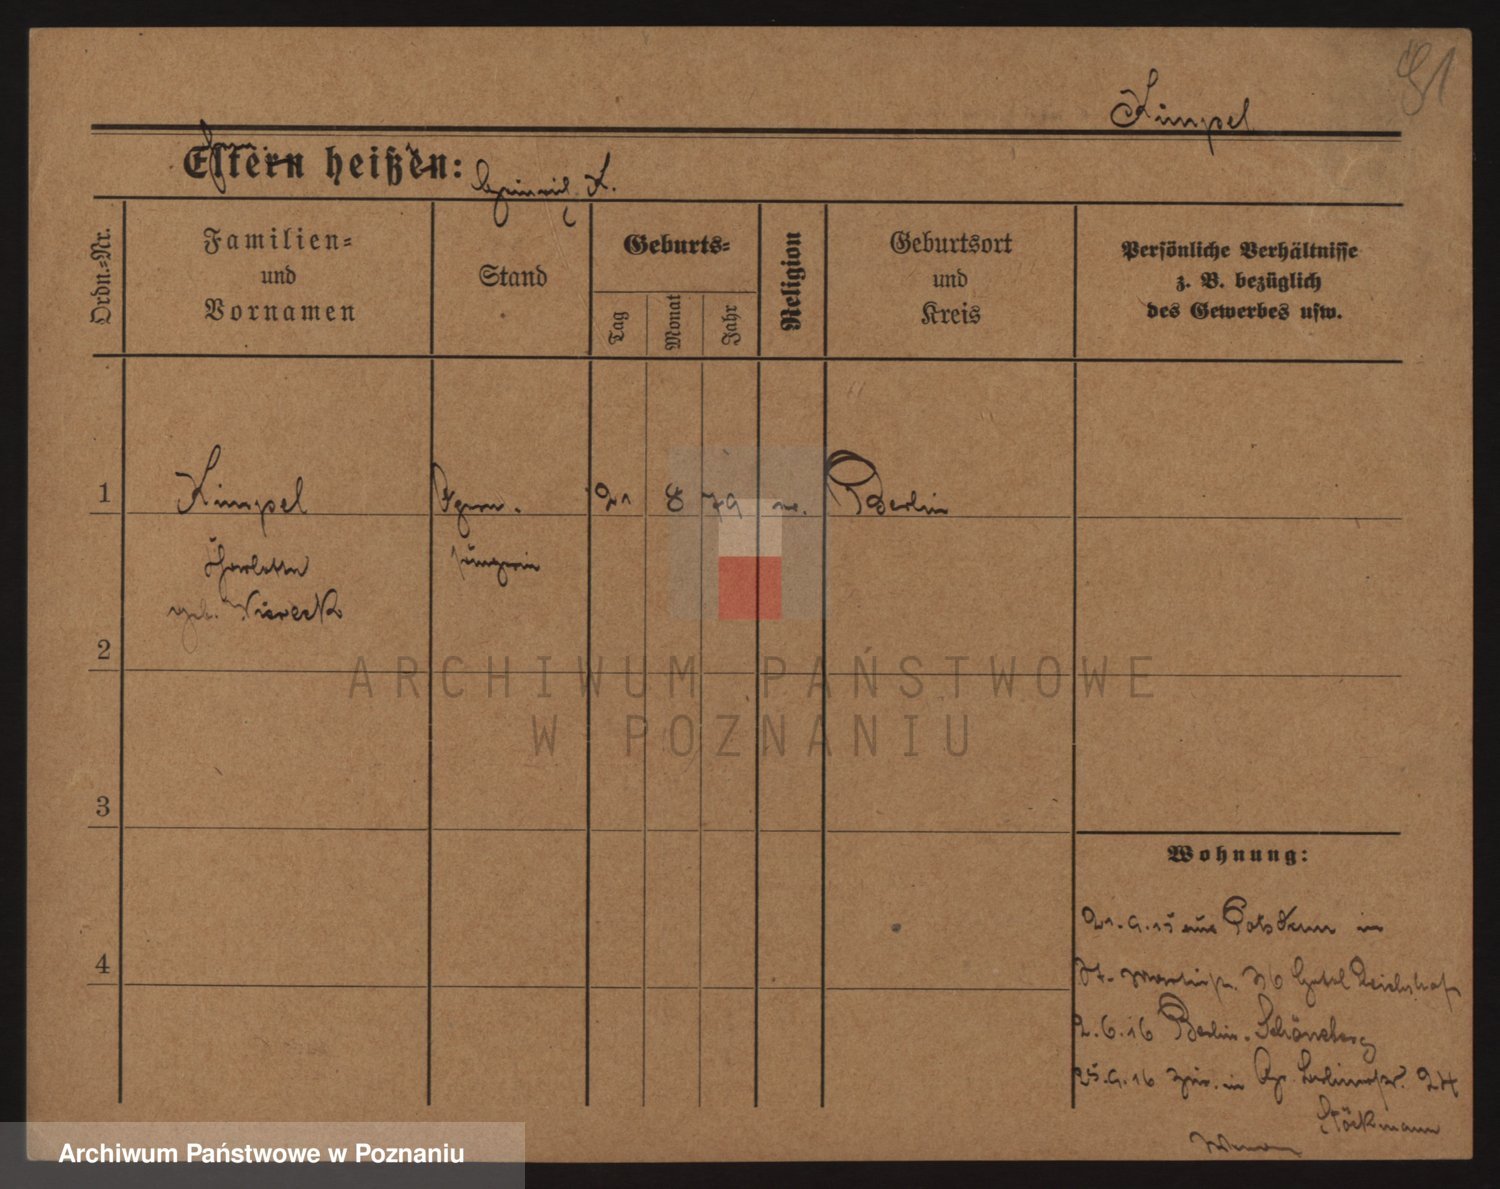 91
Kimpel
Eltern heißen:
Heinrich K.
Ordn.=Nr.
Familien=
und
Vornamen
Stand
Geburts=
Tag
Monat
Jahr
Religion
Geburtsort
und
Kreis
Persönliche Verhältnisse
z. B. bezüglich
des Gewerbes usw.
1
Kimpel
Opern.
21
8
79
Berlin
Charlotte
sängerin
geb. Viereck
2
ARCHIWUM PAŃSTWOWE
W POZNANIU
3
Wohnung:
21.9.15 aus Potsdam in
St. Martinstr. 36 Hotel Reichshof
4
2.6.16 Berlin-Schöneberg
25.9.16 zur. in Gr. Berlinerstr. 24
Stöckmann
Archiwum Państwowe w Poznaniu